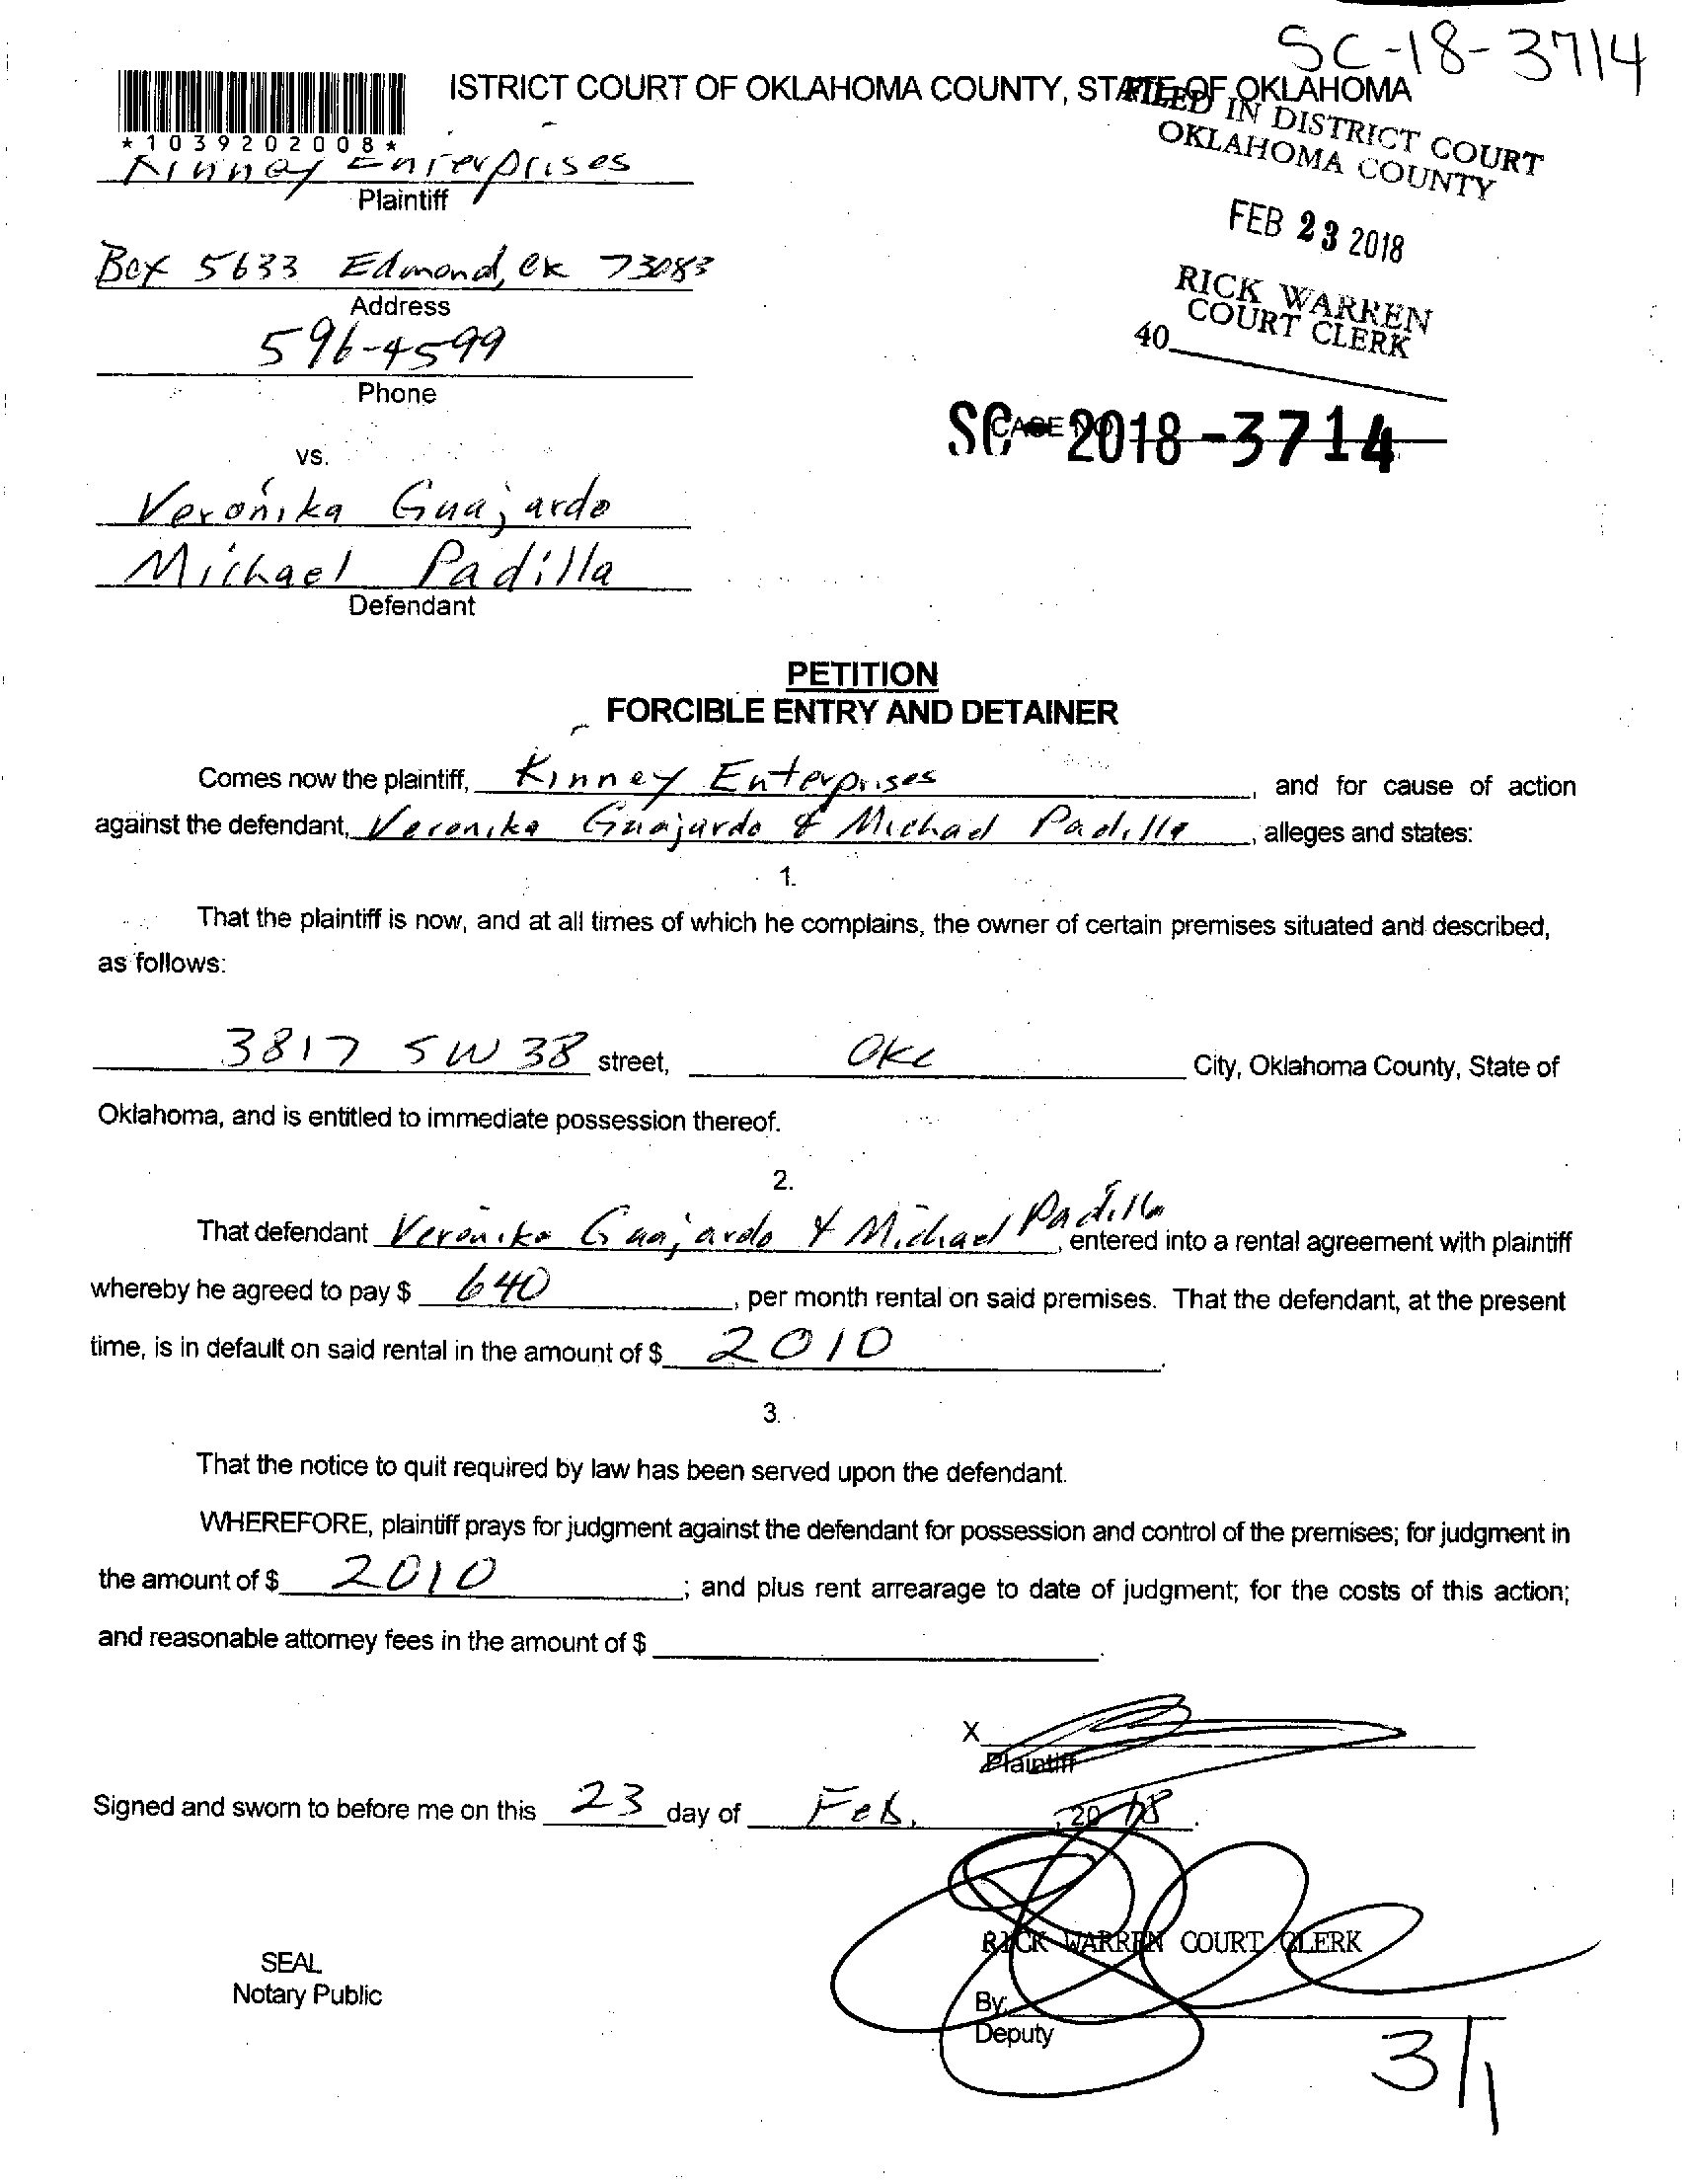 SC-18-3714
ISTRICT COURT OF OKLAHOMA COUNTY, STATE OF OKLAHOMA
FILED IN DISTRICT COURT
OKLAHOMA COUNTY
*1039202008*
Kinney Enterprises
Plaintiff
FEB 23 2018
Box 5633 Edmond, OK 73083
Address
RICK WARREN
COURT CLERK
40
596-4599
Phone
CASE NO
SC-2018-3714
vs.
Veronika Guajardo
Michael Padilla
Defendant
PETITION
FORCIBLE ENTRY AND DETAINER
Comes now the plaintiff, Kinney Enterprises, and for cause of action
against the defendant, Veronika Guajardo & Michael Padilla, alleges and states:
1.
That the plaintiff is now, and at all times of which he complains, the owner of certain premises situated and described,
as follows:
3817 SW 38 street, OKC City, Oklahoma County, State of
Oklahoma, and is entitled to immediate possession thereof.
2.
That defendant Veronika Guajardo & Michael Padilla, entered into a rental agreement with plaintiff
whereby he agreed to pay $ 640, per month rental on said premises. That the defendant, at the present
time, is in default on said rental in the amount of $ 2010.
3.
That the notice to quit required by law has been served upon the defendant.
WHEREFORE, plaintiff prays for judgment against the defendant for possession and control of the premises; for judgment in
the amount of $ 2010; and plus rent arrearage to date of judgment; for the costs of this action;
and reasonable attorney fees in the amount of $ .
X
Plaintiff
Signed and sworn to before me on this 23 day of Feb., 2018.
RICK WARREN COURT CLERK
SEAL
Notary Public
By:
Deputy
3/1